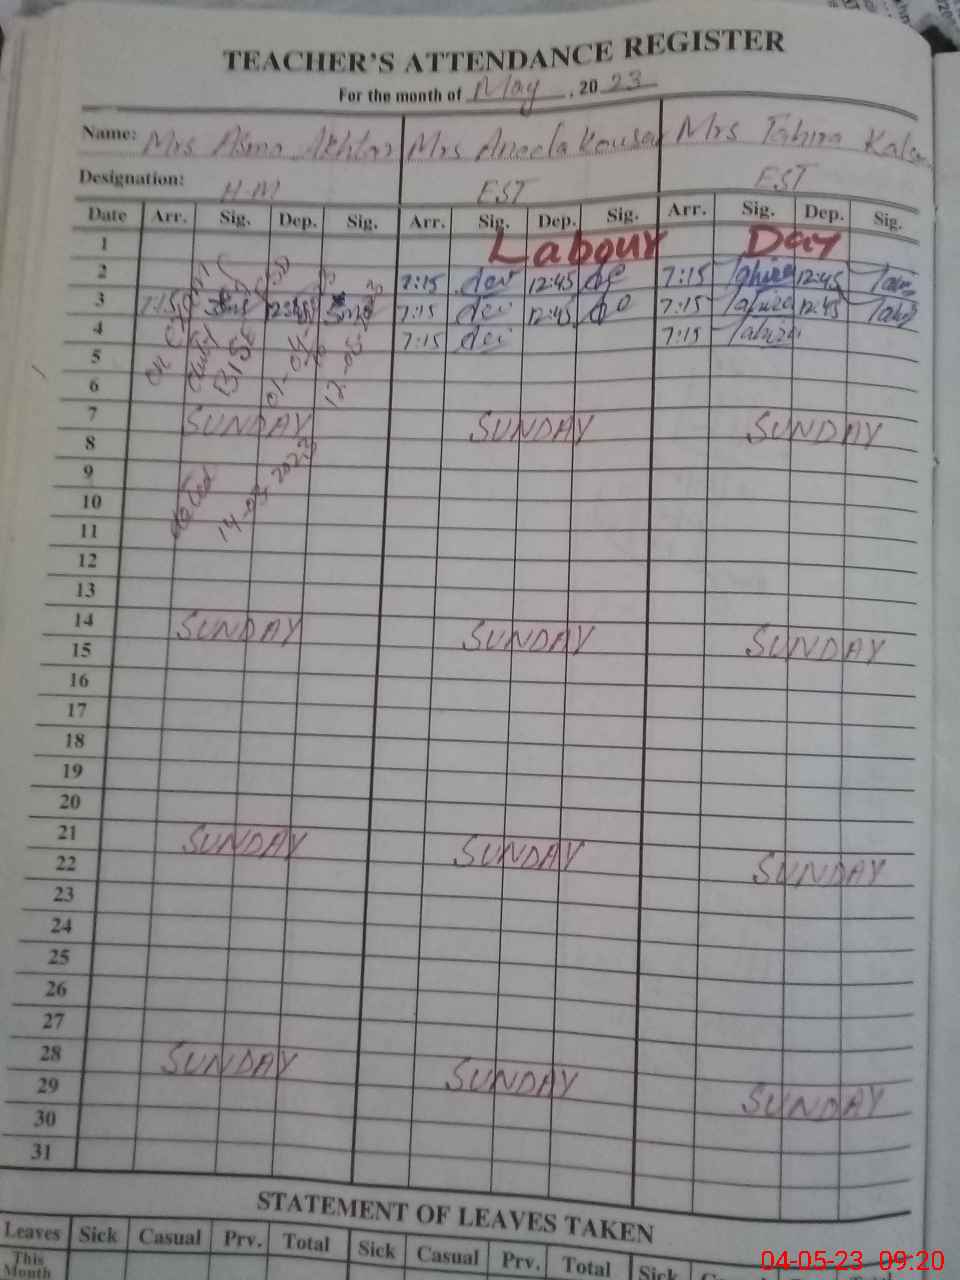 TEACHER'S ATTENDANCE REGISTER
For the month of May, 2023
Name: Mrs Asma Akhtar Mrs Aneela Kousar Mrs Tahira
Designation: H-M EST EST
Date Arr. Sig. Dep. Sig. Arr. Sig. Dep. Sig. Arr. Sig. Dep. Sig.
1 Labour Day
2 7:15 12:45 7:15 Tahira 12:45
3 7:15 7:15 12:45 7:15 Tahira 12:45
4 7:15 7:15 Tahira
5
6
7 SUNDAY SUNDAY SUNDAY
8
9
dated 14-03-2023
10
11
12
13
14 SUNDAY SUNDAY SUNDAY
15
16
17
18
19
20
21 SUNDAY SUNDAY SUNDAY
22
23
24
25
26
27
28 SUNDAY SUNDAY SUNDAY
29
30
31
STATEMENT OF LEAVES TAKEN
Leaves Sick Casual Prv. Total Sick Casual Prv. Total Sick
This Month
04-05-23 09:20